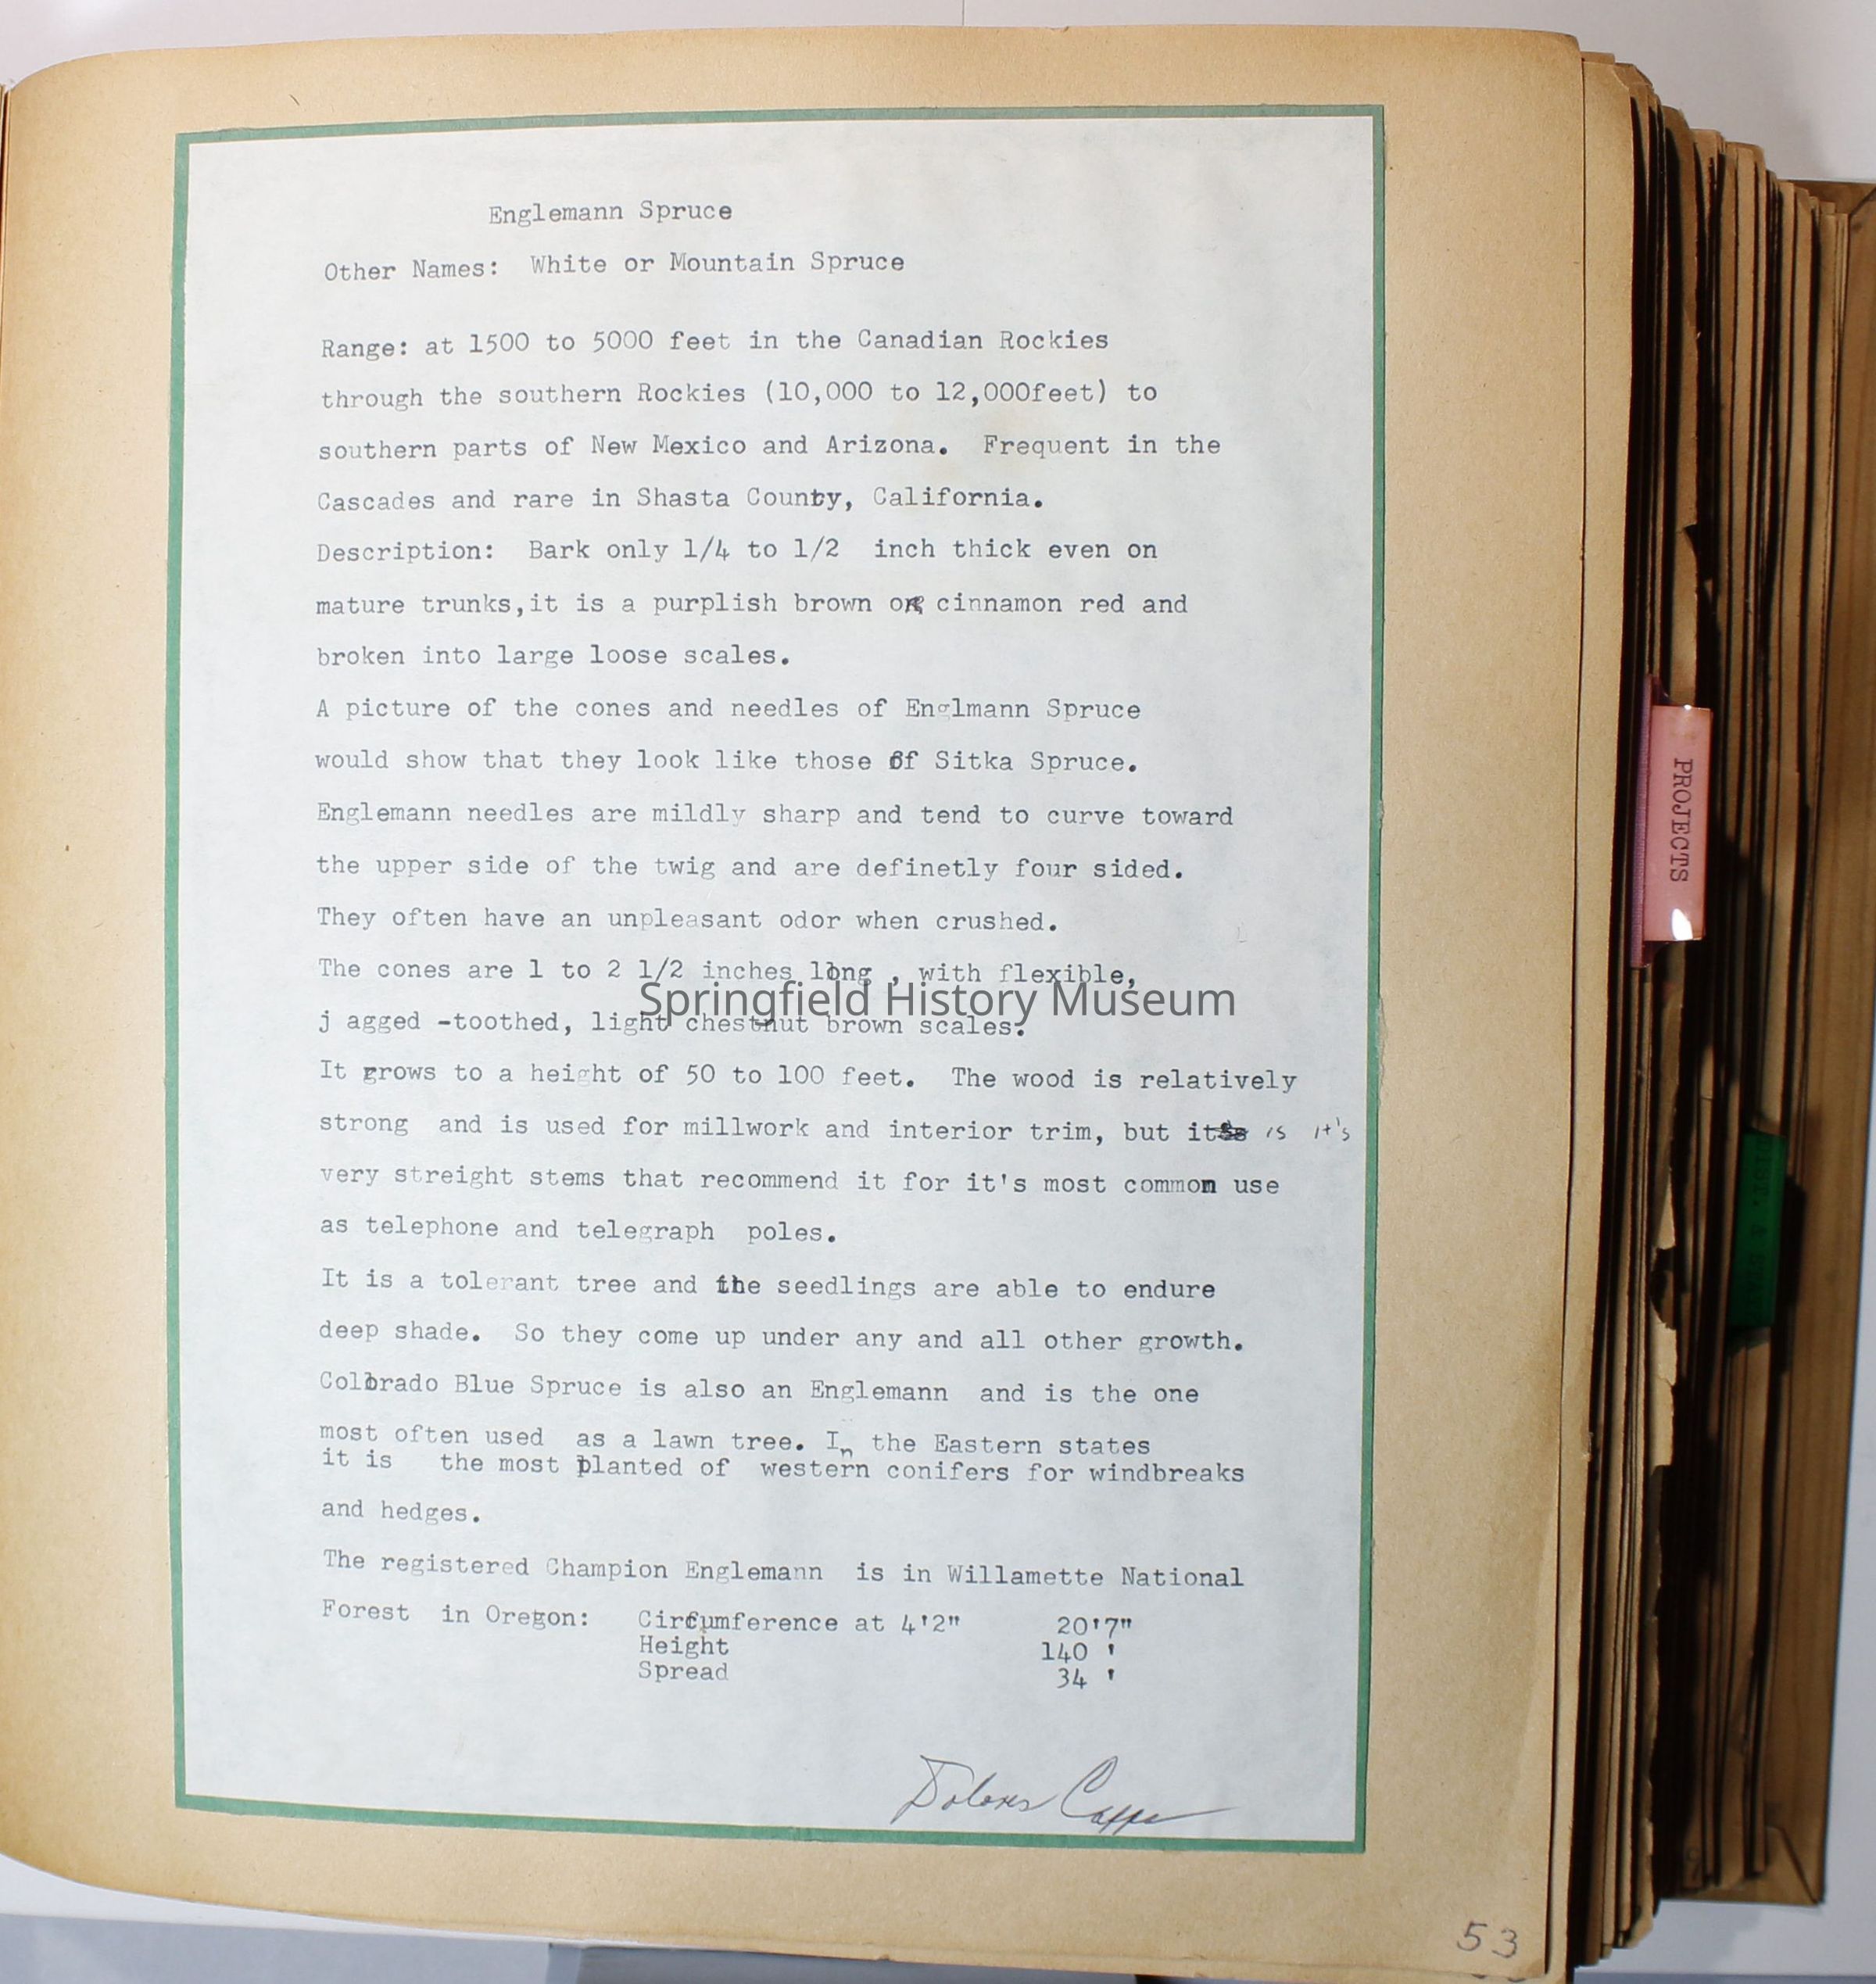 Englemann Spruce
Other Names: White or Mountain Spruce
Range: at 1500 to 5000 feet in the Canadian Rockies
through the southern Rockies (10,000 to 12,000feet) to
southern parts of New Mexico and Arizona. Frequent in the
Cascades and rare in Shasta County, California.
Description: Bark only 1/4 to 1/2 inch thick even on
mature trunks,it is a purplish brown or cinnamon red and
broken into large loose scales.
A picture of the cones and needles of Englmann Spruce
would show that they look like those of Sitka Spruce.
Englemann needles are mildly sharp and tend to curve toward
the upper side of the twig and are definetly four sided.
They often have an unpleasant odor when crushed.
The cones are 1 to 2 1/2 inches long , with flexible,
Springfield History Museum
j agged -toothed, light chestnut brown scales.
It grows to a height of 50 to 100 feet. The wood is relatively
strong and is used for millwork and interior trim, but it is it's
very streight stems that recommend it for it's most common use
as telephone and telegraph poles.
It is a tolerant tree and the seedlings are able to endure
deep shade. So they come up under any and all other growth.
Colorado Blue Spruce is also an Englemann and is the one
most often used as a lawn tree. In the Eastern states
it is the most planted of western conifers for windbreaks
and hedges.
The registered Champion Englemann is in Willamette National
Forest in Oregon: Circumference at 4'2" 20'7"
Height 140 '
Spread 34 '
Dolores
53
PROJECTS